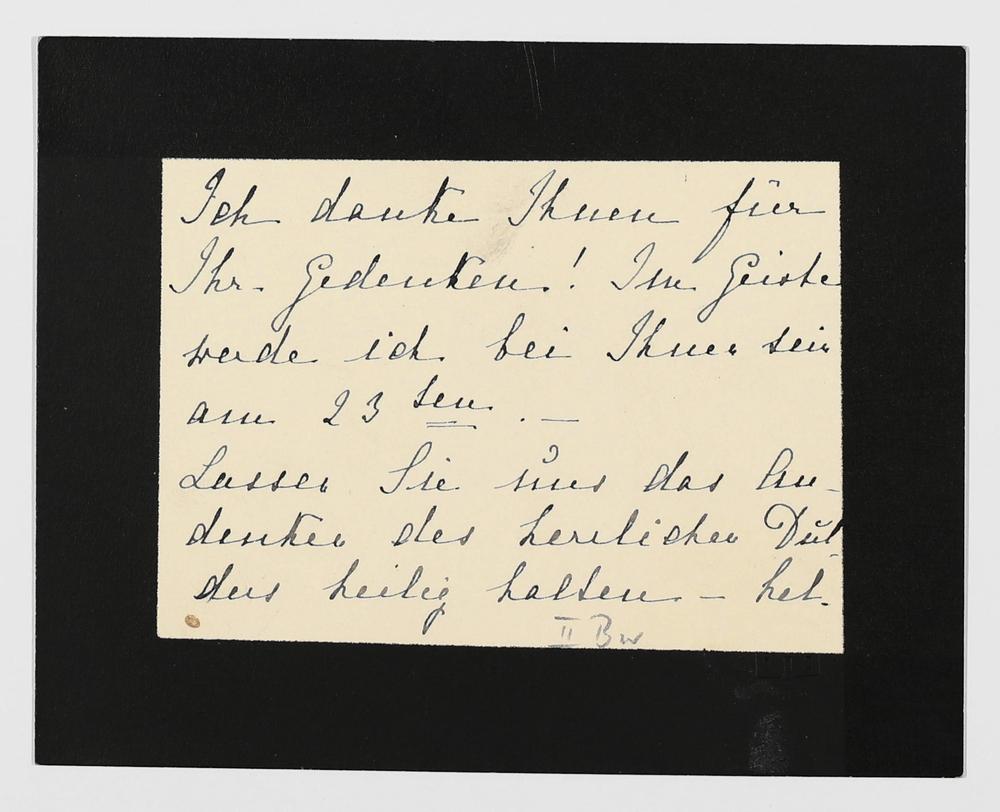 Ich danke Ihnen für
Ihr Gedenken! Im Geiste
werde ich bei Ihnen sein
am 23 sen. —
Lassen Sie uns das An-
denken des herrlichen Dul-
ders heilig halten – hel-
II Bw